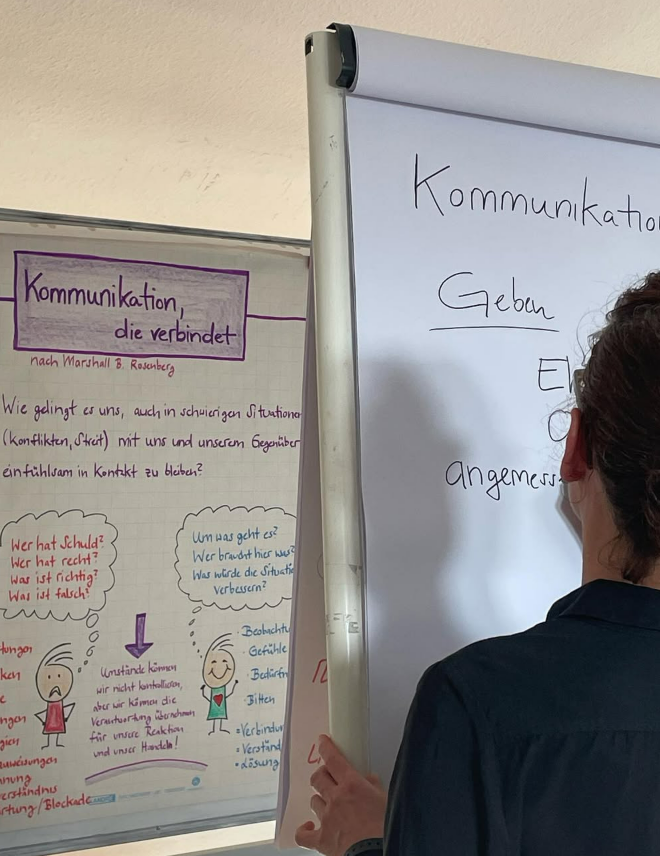 Kommunikation,
die verbindet
nach Marshall B. Rosenberg
Wie gelingt es uns, auch in schwierigen Situationen
(Konflikten, Streit) mit uns und unserem Gegenüber
einfühlsam in Kontakt zu bleiben?
Wer hat Schuld?
Wer hat recht?
Was ist richtig?
Was ist falsch?
Um was geht es?
Wer braucht hier was?
Was würde die Situatio
verbessern?
Umstände können
wir nicht kontrollieren,
aber wir können die
Verantwortung übernehmen
für unsere Reaktion
und unser Handeln!
• Beobachtu
• Gefühle
• Bedürfn
• Bitten
= Verbindun
= Verständ
= Lösung
rtung/Blockade
Kommunikatio
Geben
angemess